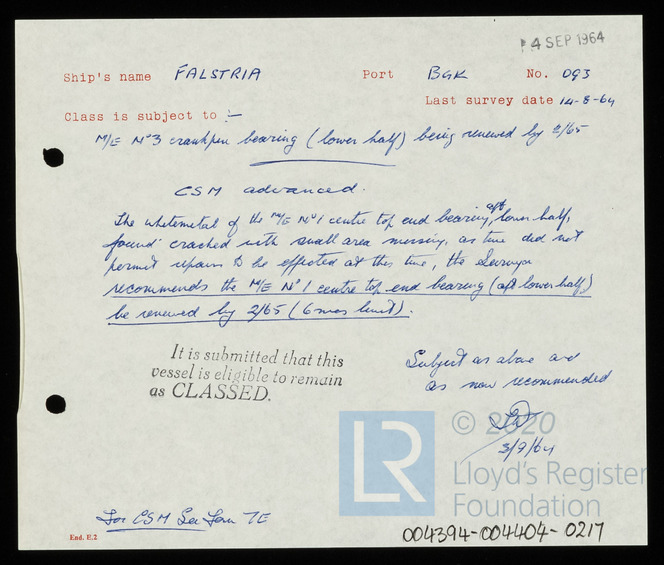 4 SEP 1964
Ship's name FALSTRIA Port BGK No. 093
Last survey date 14-8-64
Class is subject to :-
M/E Nº3 crankpin bearing (lower half) being renewed by 2/65
CSM advanced.
The whitemetal of the M/E Nº1 centre top end bearing, aft lower half,
found cracked with small area missing, as time did not
permit repairs to be effected at this time, the Surveyor
recommends the M/E Nº1 centre top end bearing (aft lower half)
be renewed by 2/65 (6 mos limit).
It is submitted that this
vessel is eligible to remain
as CLASSED.
Subject as above and
as now recommended
3/9/64
© 2020
LR
Lloyd's Register
Foundation
For CSM See Form TE
End. E.2
004394-004404-0217